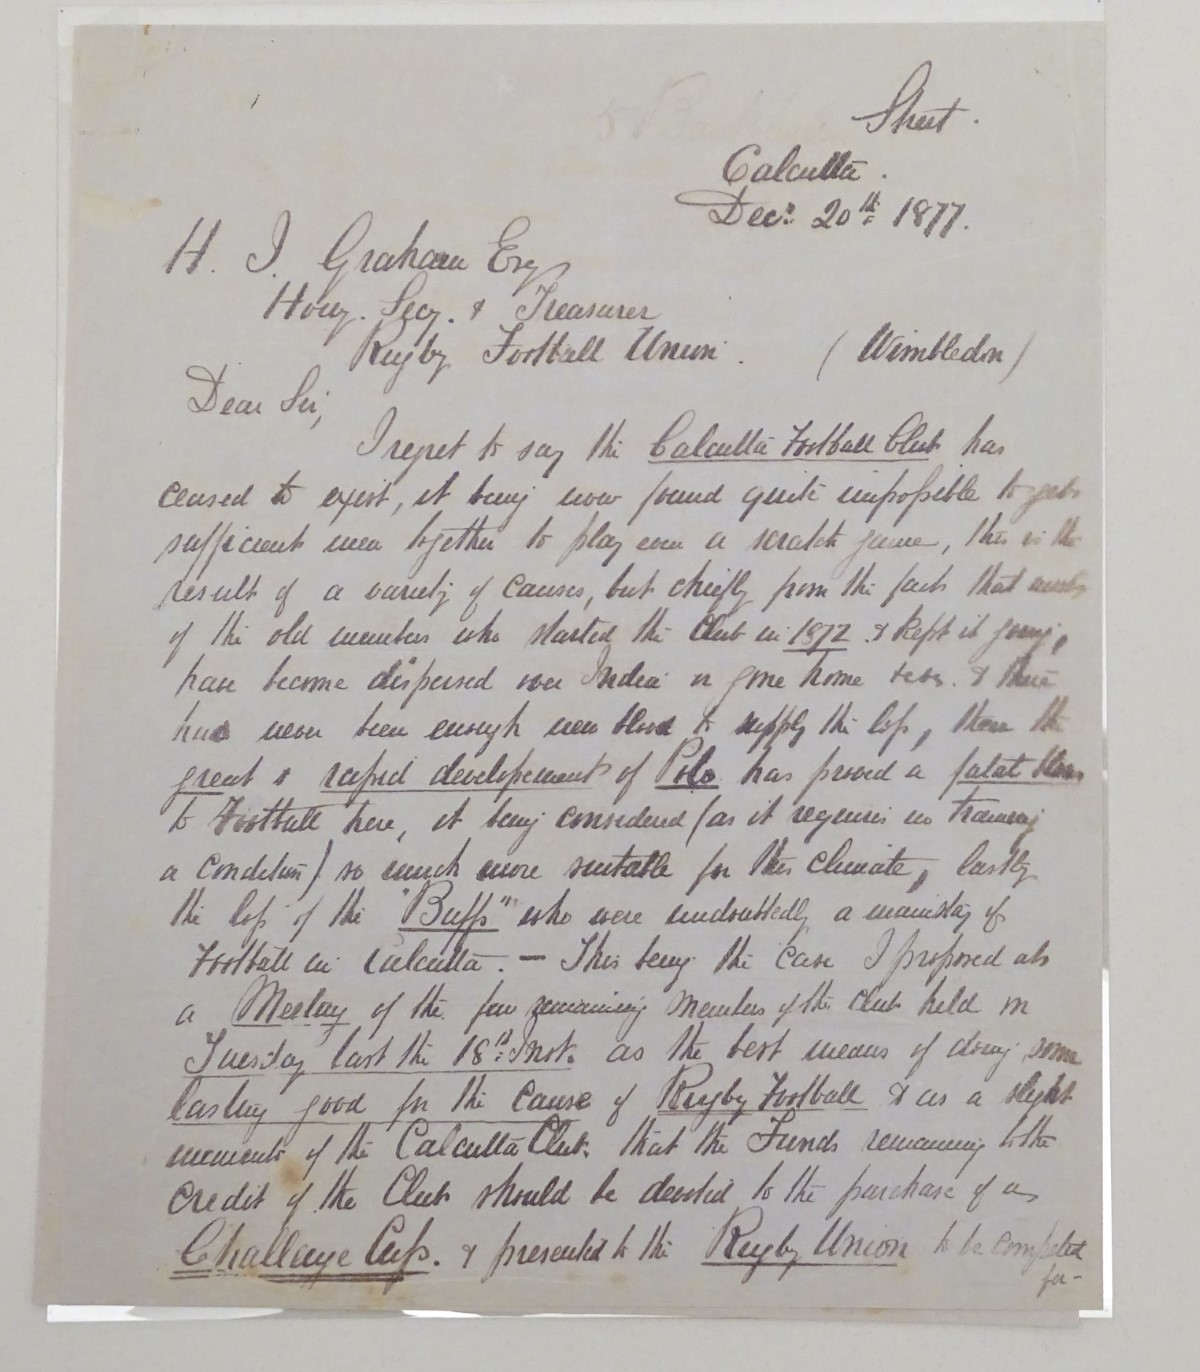 Street.
Calcutta.
Decr. 20th 1877.
H. I. Graham Esq
Hony. Secy. & Treasurer
Rugby Football Union. (Wimbledon)
Dear Sir,
I regret to say the Calcutta Football Club has
ceased to exist, it being now found quite impossible to get
sufficient men together to play even a scratch game, this is the
result of a variety of causes, but chiefly from the fact that
of the old members who started the Club in 1872 & kept it going,
have become dispersed over India or gone home & there
has never been enough new blood to supply the loss, then the
great & rapid developement of Polo has proved a fatal blow
to Football here, it being considered (as it requires no training
a condition) so much more suitable for this climate, lastly
the loss of the "Buffs" who were undoubtedly a mainstay of
Football in Calcutta. — This being the case I proposed at
a Meeting of the few remaining members of the club held on
Tuesday last the 18th Inst. as the best means of doing some
lasting good for the cause of Rugby Football & as a slight
memento of the Calcutta Club. that the Funds remaining to the
credit of the Club should be devoted to the purchase of a
Challenge Cup. & presented to the Rugby Union to be competed
for-